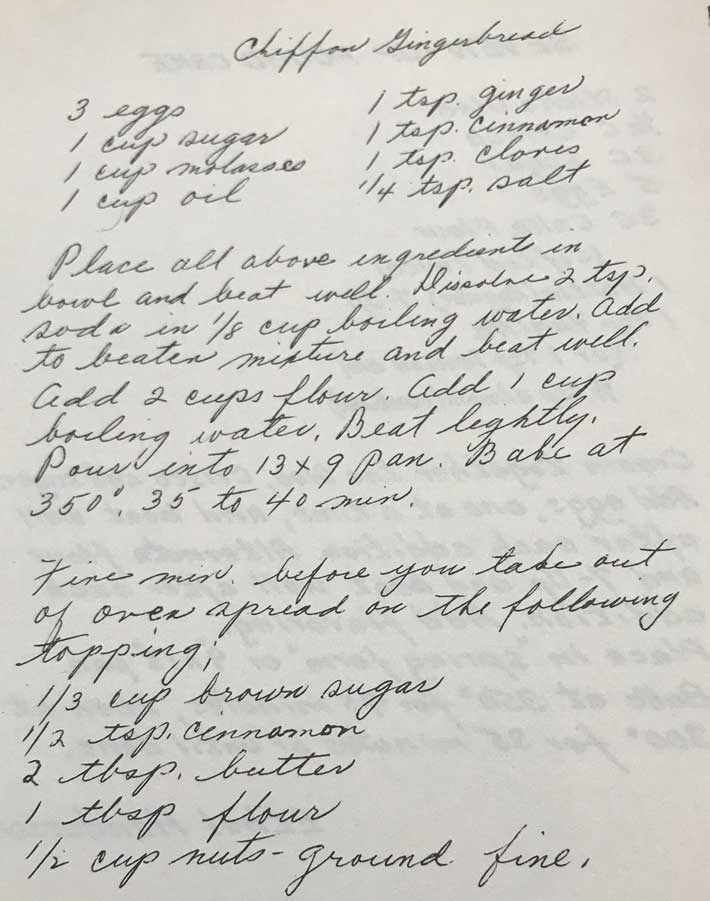 Chiffon Gingerbread
3 eggs
1 cup sugar
1 cup molasses
1 cup oil
1 tsp. ginger
1 tsp. cinnamon
1 tsp. cloves
1/4 tsp. salt
Place all above ingredients in
bowl and beat well. Dissolve 2 tsp.
soda in 1/8 cup boiling water. Add
to beaten mixture and beat well.
Add 2 cups flour. Add 1 cup
boiling water. Beat lightly.
Pour into 13 x 9 pan. Bake at
350° 35 to 40 min.
Five min. before you take out
of oven spread on the following
topping;
1/3 cup brown sugar
1/2 tsp. cinnamon
2 tbsp. butter
1 tbsp flour
1/2 cup nuts - ground fine.